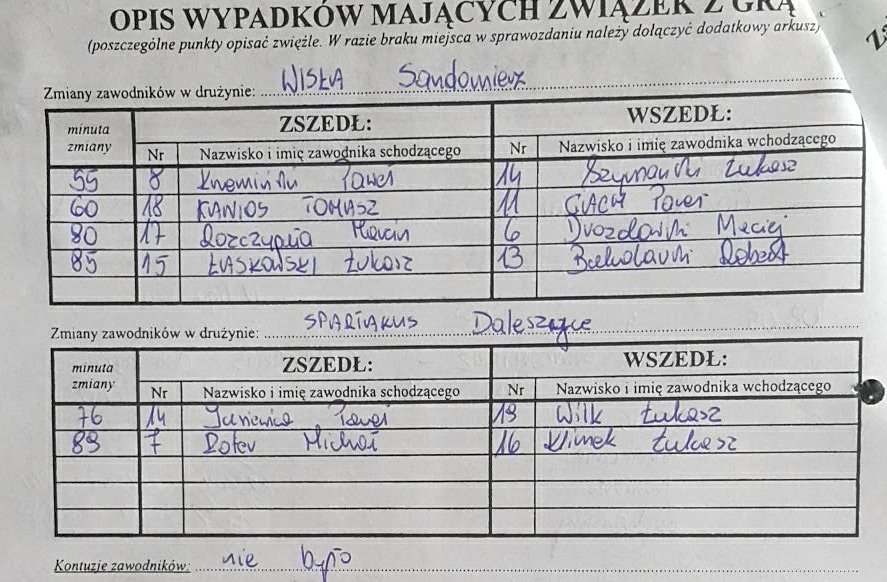 OPIS WYPADKÓW MAJĄCYCH ZWIĄZEK Z GRĄ
(poszczególne punkty opisać zwięźle. W razie braku miejsca w sprawozdaniu należy dołączyć dodatkowy arkusz)
Zmiany zawodników w drużynie: WISŁA Sandomierz
minuta zmiany ZSZEDŁ: WSZEDŁ:
Nr Nazwisko i imię zawodnika schodzącego Nr Nazwisko i imię zawodnika wchodzącego
55 8 Paweł 14 Szymański Łukasz
60 18 KANIOS TOMASZ 11 Paweł
80 17 Marcin 6 Maciej
85 15 ŁUSKOWSKI Łukasz 13 Robert
Zmiany zawodników w drużynie: SPARTAKUS Daleszyce
minuta zmiany ZSZEDŁ: WSZEDŁ:
Nr Nazwisko i imię zawodnika schodzącego Nr Nazwisko i imię zawodnika wchodzącego
76 14 Paweł 19 Wilk Łukasz
89 7 Michał 16 Klimek Łukasz
Kontuzje zawodników: nie było